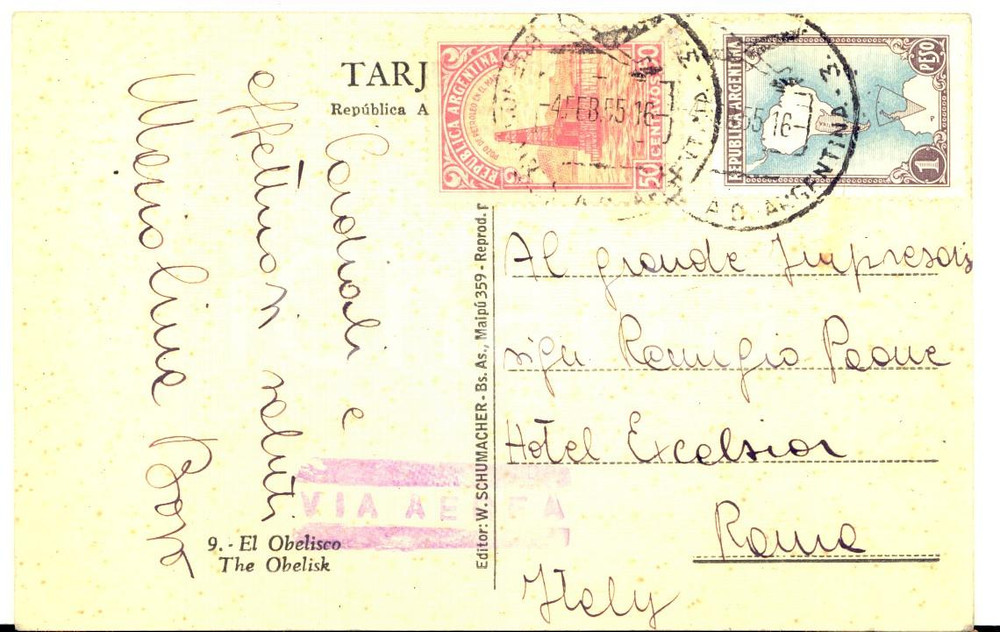 TARJ
República A
Cordiali e
affettuosi saluti
9.- El Obelisco
The Obelisk
Editor: W. SCHUMACHER - Bs. As., Maipú 359 - Reprod. p
VIA AEREA
REPUBLICA ARGENTINA
50 CENTAVOS 50
-4 FEB. 55 16-
ARGENTINA
REPUBLICA ARGENTINA
1 PESO
55 16-
ARGENTINA
Al grande Impresario
sigr Remigio Paone
Hotel Excelsior
Roma
Italy